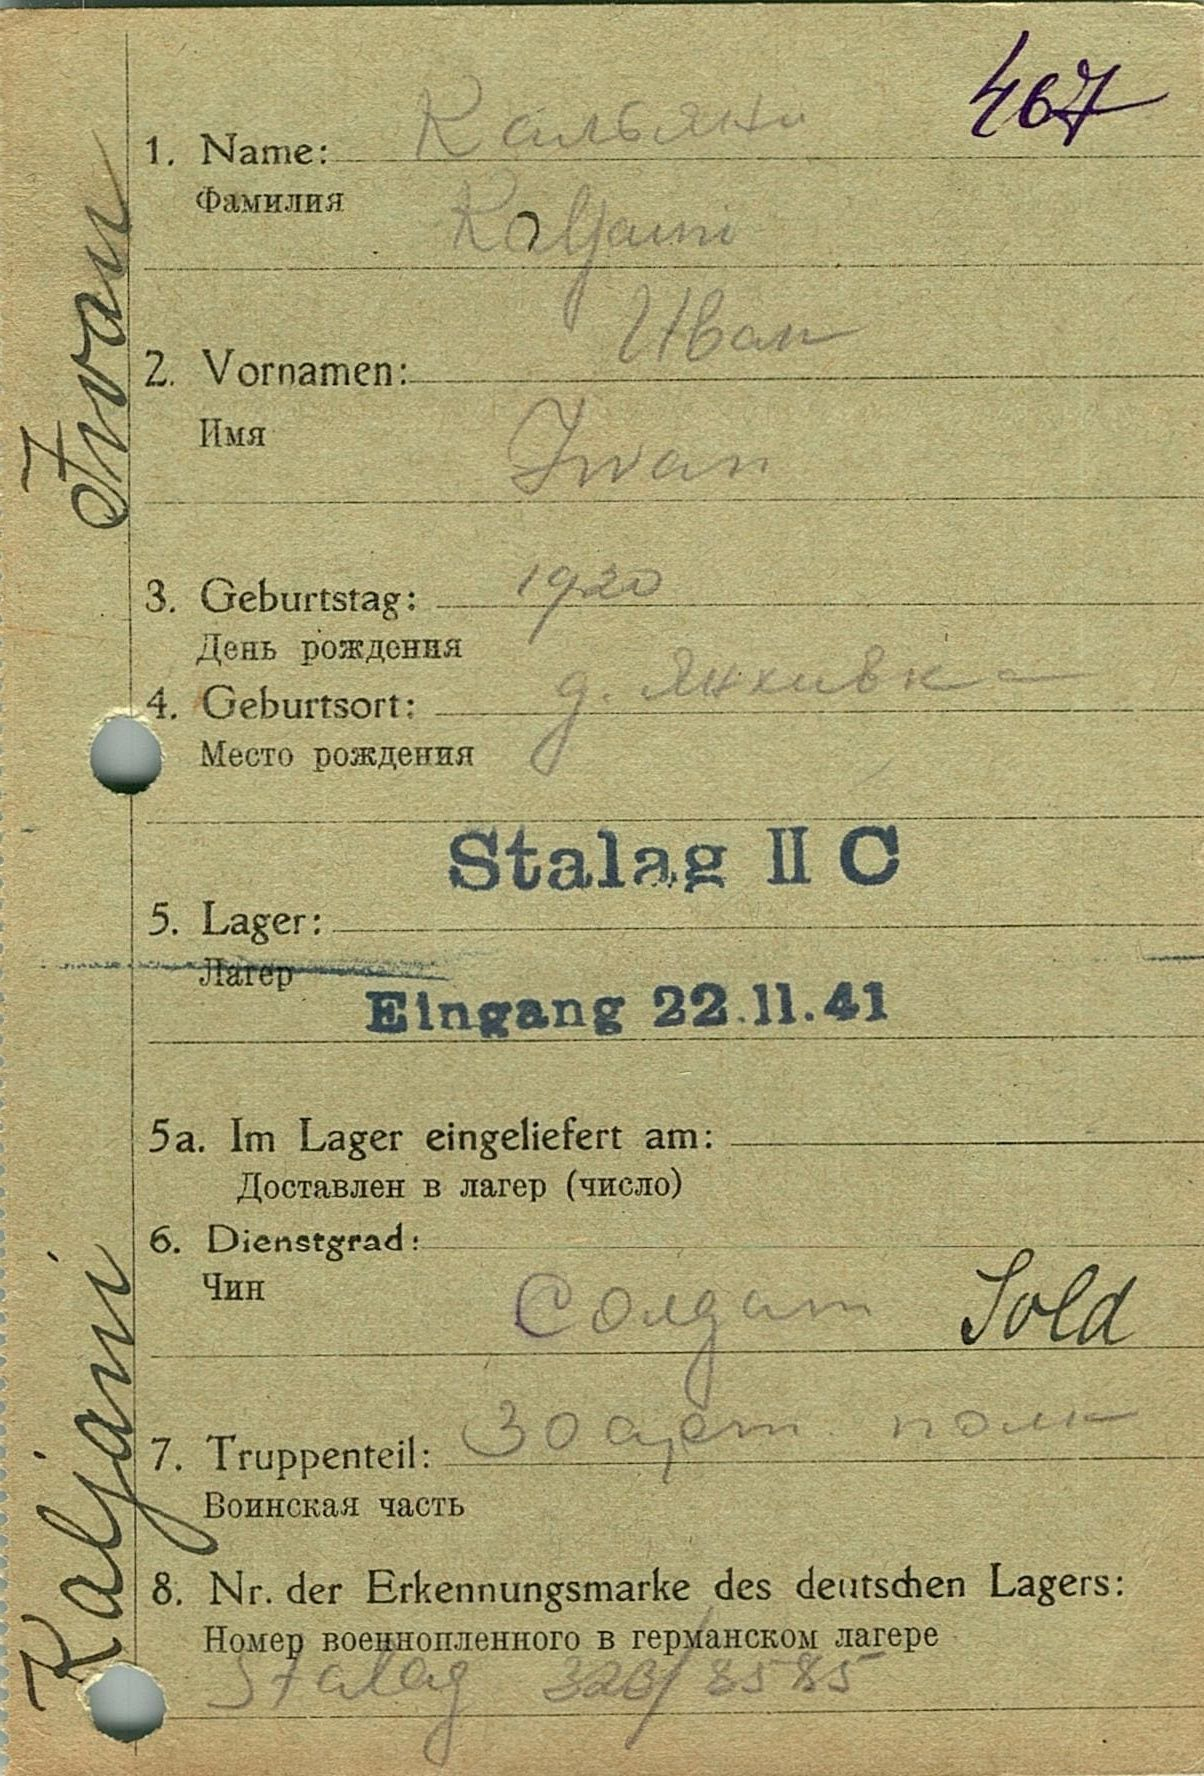 467
1. Name: Кальяни
Фамилия Kaljani
2. Vornamen: Иван
Имя Iwan
3. Geburtstag: 1920
День рождения
4. Geburtsort: д. Янкивка
Место рождения
Stalag II C
5. Lager:
Лагер
Eingang 22.11.41
5a. Im Lager eingeliefert am:
Доставлен в лагер (число)
6. Dienstgrad:
Чин Солдат Sold
7. Truppenteil: 30 арт. полк
Воинская часть
8. Nr. der Erkennungsmarke des deutschen Lagers:
Номер военнопленного в германском лагере
Stalag 323/8585
Kaljani Iwan